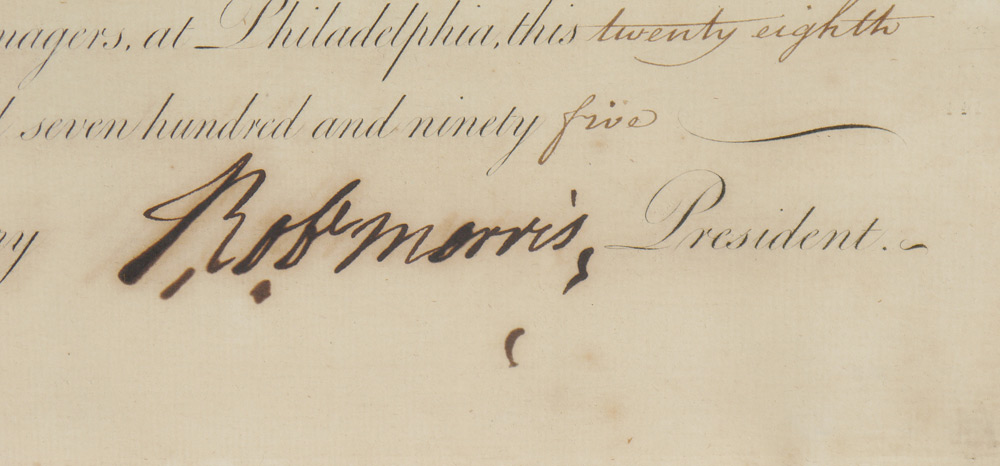 nagers, at Philadelphia, this twenty eighth
seven hundred and ninety five
Robt Morris, President.